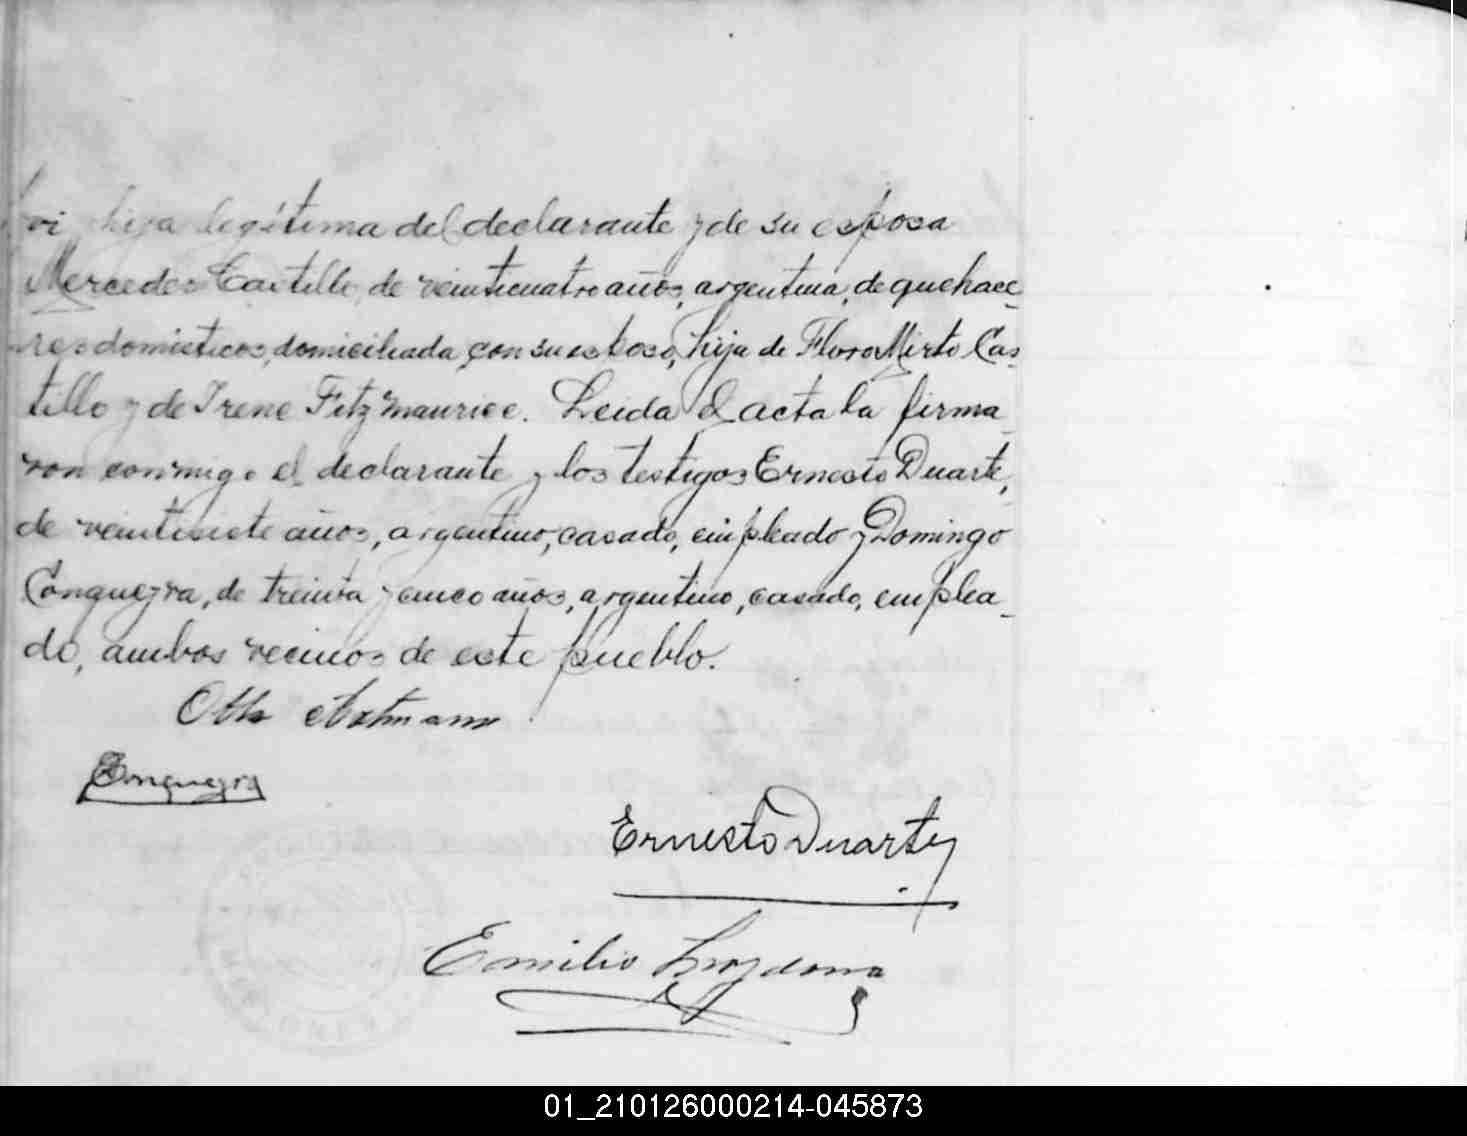 vi hija legítima del declarante y de su esposa
Mercedes Castillo, de veinticuatro años, argentina, de quehace-
res domésticos, domiciliada con su esposo, hija de Floro Mirto Cas-
tillo y de Irene Fitz Maurice. Leida el acta la firma-
ron conmigo el declarante y los testigos Ernesto Duarte,
de veintisiete años, argentino, casado, empleado y Domingo
Conqueyra, de treinta y cinco años, argentino, casado, emplea-
do, ambos vecinos de este pueblo.
Otto
Conqueyra
Ernesto Duarte
Emilio
01_210126000214-045873